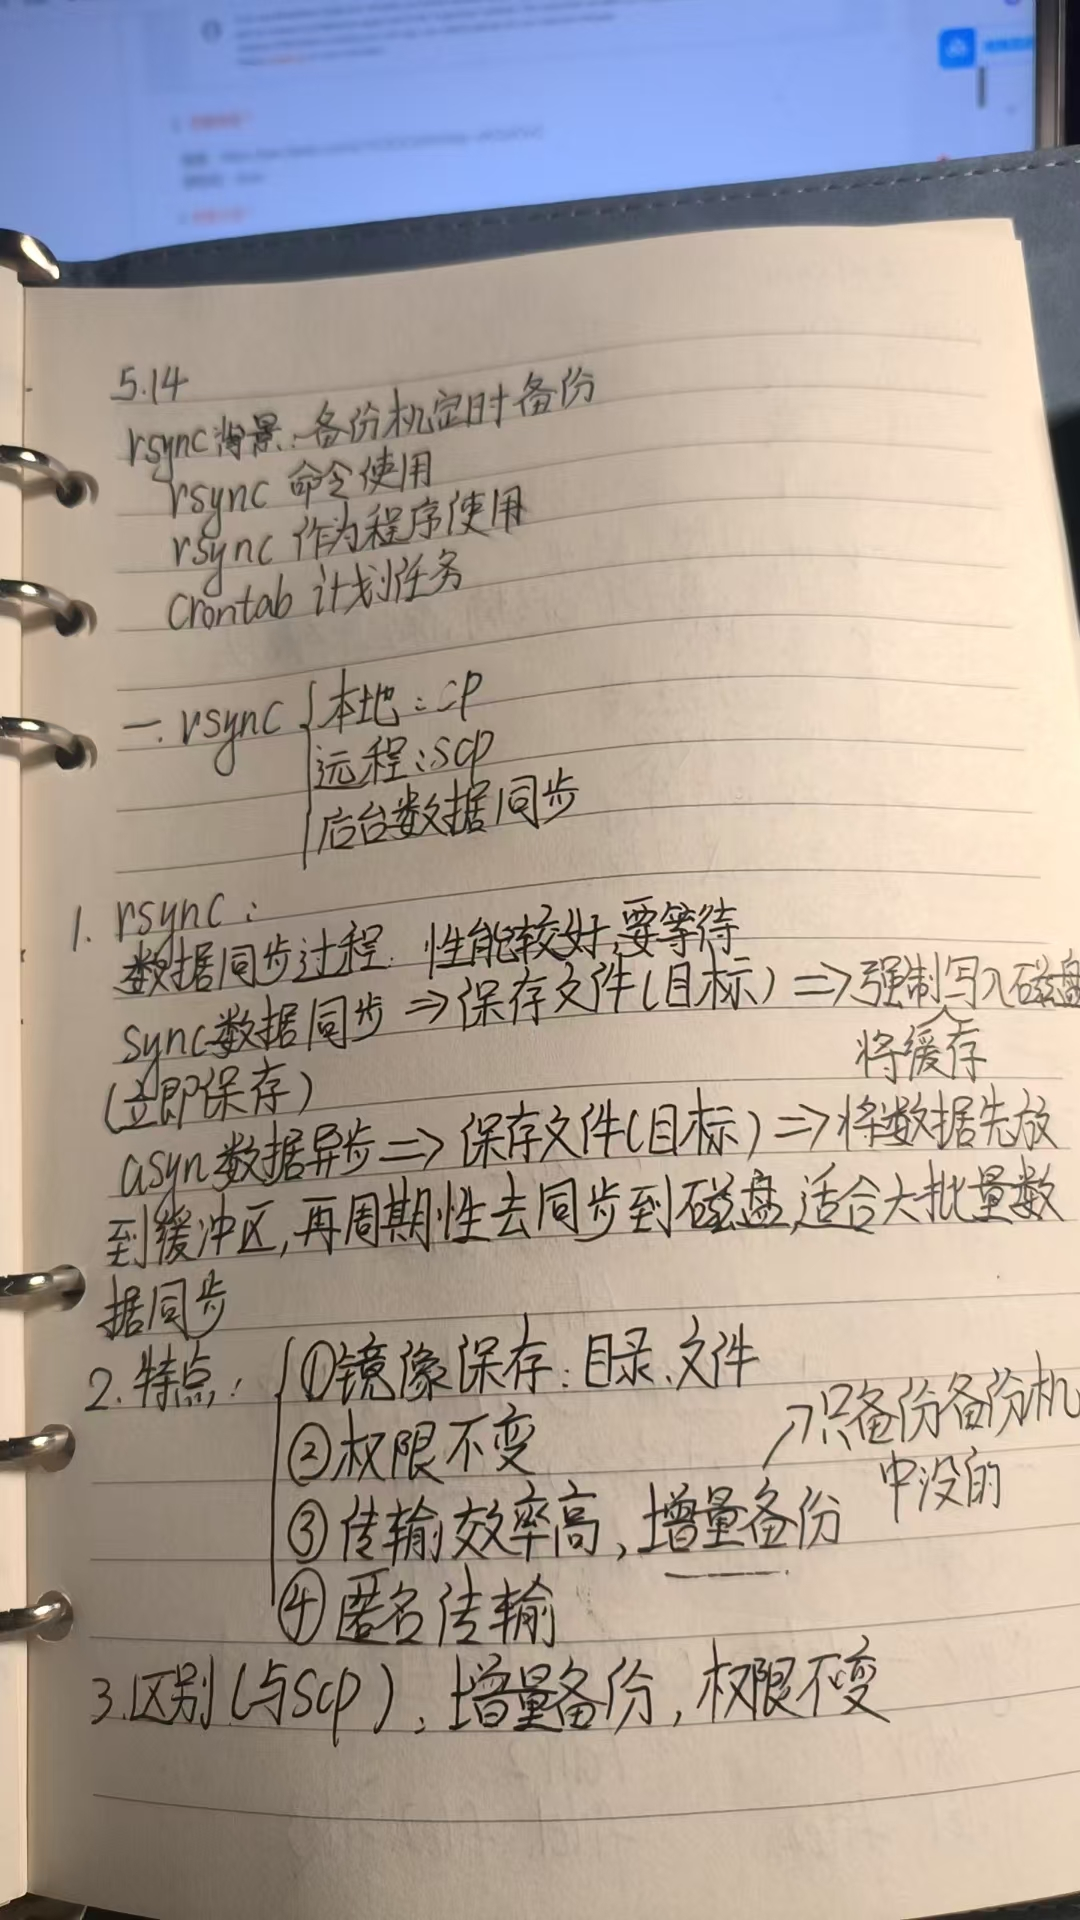 5.14
rsync背景：备份机定时备份
rsync 命令使用
rsync 作为程序使用
Crontab 计划任务
一. rsync
本地：cp
远程：scp
后台数据同步
1. rsync：
数据同步过程. 性能较好,要等待
sync数据同步 => 保存文件(目标) => 强制写入磁盘
将缓存
(立即保存)
asyn数据异步 => 保存文件(目标) => 将数据先放
到缓冲区,再周期性去同步到磁盘,适合大批量数
据同步
2. 特点：
①镜像保存：目录、文件
②权限不变
③传输效率高，增量备份
↗只备份备份机
中没的
④匿名传输
3.区别(与Scp)：增量备份，权限不变